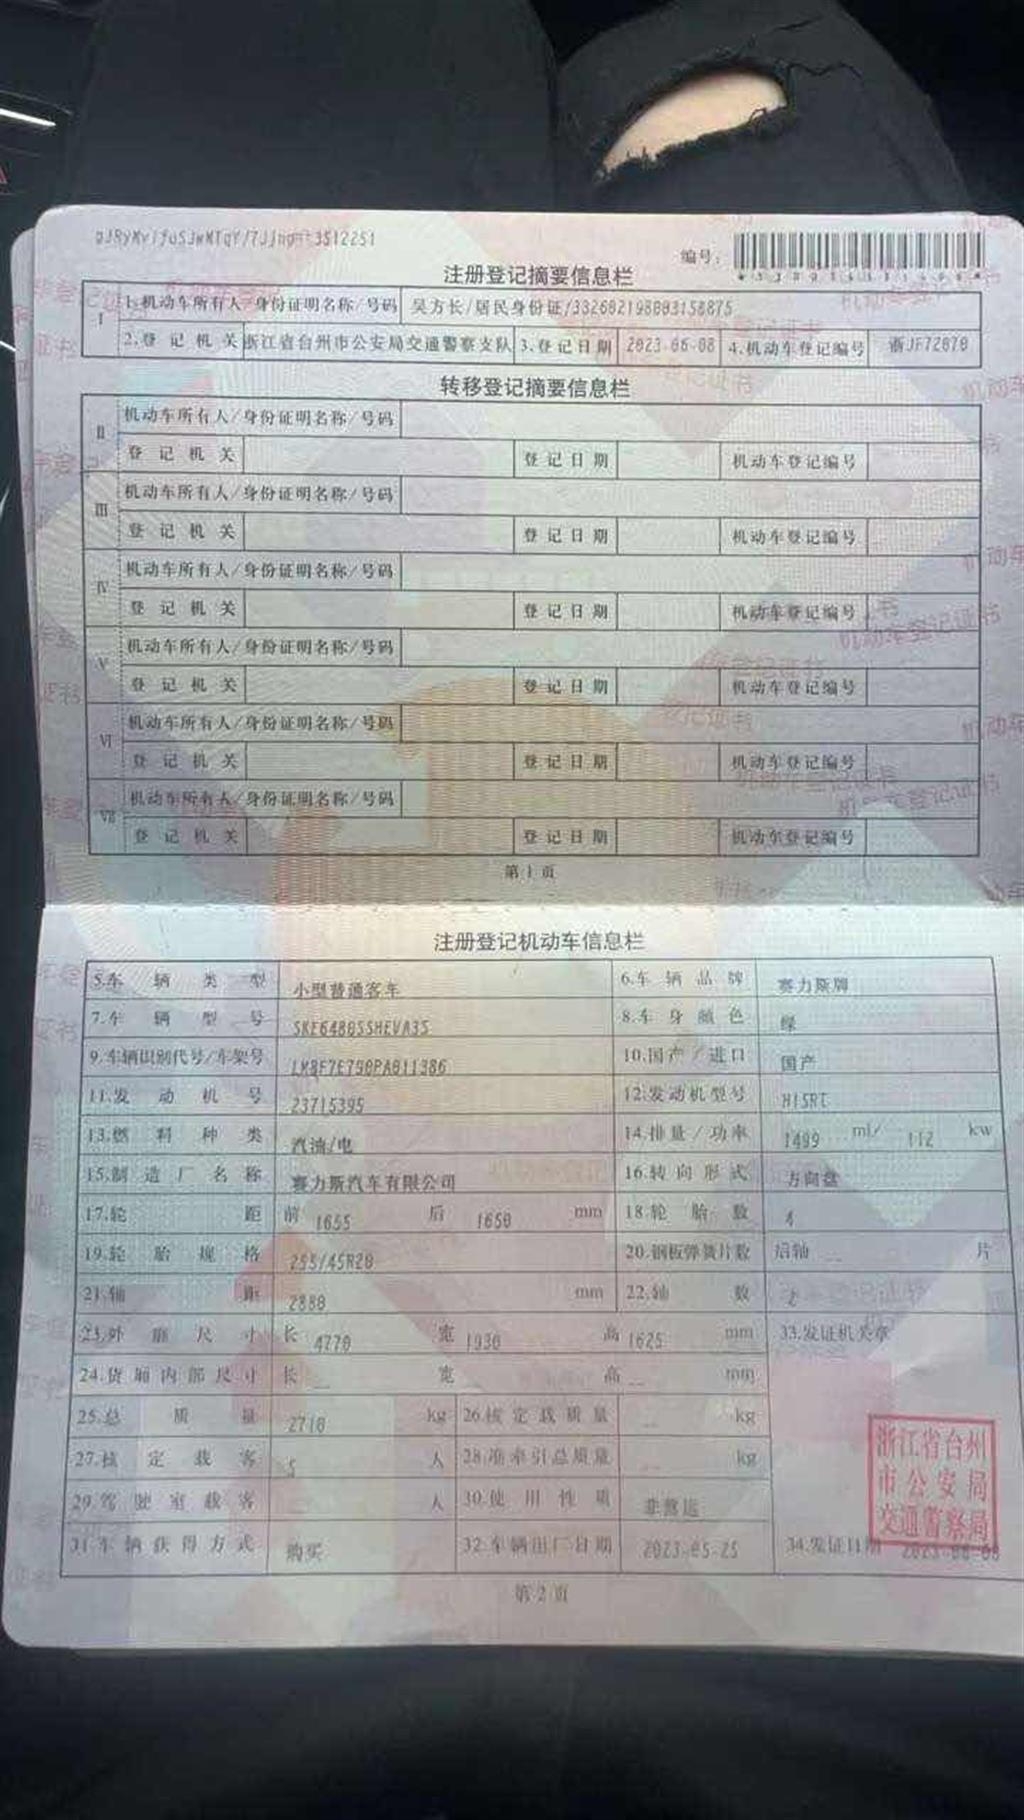 注册登记摘要信息栏
编号:
I
1.机动车所有人/身份证明名称/号码 吴方长/居民身份证/332602198003158875
2.登记机关 浙江省台州市公安局交通警察支队 3.登记日期 2023-06-08 4.机动车登记编号 浙JF72070
转移登记摘要信息栏
II
机动车所有人/身份证明名称/号码
登记机关 登记日期 机动车登记编号
III
机动车所有人/身份证明名称/号码
登记机关 登记日期 机动车登记编号
IV
机动车所有人/身份证明名称/号码
登记机关 登记日期 机动车登记编号
V
机动车所有人/身份证明名称/号码
登记机关 登记日期 机动车登记编号
VI
机动车所有人/身份证明名称/号码
登记机关 登记日期 机动车登记编号
VII
机动车所有人/身份证明名称/号码
登记机关 登记日期 机动车登记编号
第1页
注册登记机动车信息栏
5.车辆类型 小型普通客车 6.车辆品牌 赛力斯牌
7.车辆型号 SKE6480SSHEVA3S 8.车身颜色 绿
9.车辆识别代号/车架号 LM8F7E790PA011386 10.国产/进口 国产
11.发动机号 23715395 12.发动机型号 H15RT
13.燃料种类 汽油/电 14.排量/功率 1499 ml/ 112 kw
15.制造厂名称 赛力斯汽车有限公司 16.转向形式 方向盘
17.轮距 前 1655 后 1650 mm 18.轮胎数 4
19.轮胎规格 255/45R20 20.钢板弹簧片数 后轴 __ 片
21.轴距 2880 mm 22.轴数 2
23.外廓尺寸 长 4770 宽 1930 高 1625 mm 33.发证机关章
24.货厢内部尺寸 长 __ 宽 高 __ mm
25.总质量 2710 kg 26.核定载质量 __ kg
27.核定载客 5 人 28.准牵引总质量 __ kg
29.驾驶室载客 人 30.使用性质 非营运
31.车辆获得方式 购买 32.车辆出厂日期 2023-05-25 34.发证日期 2023-06-08
浙江省台州
市公安局
交通警察局
第2页